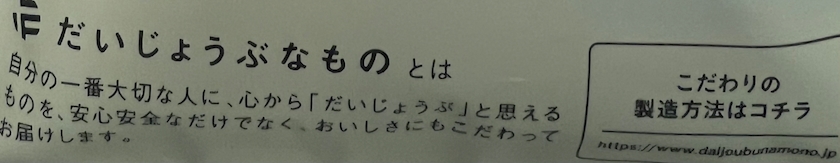 だいじょうぶなもの とは
自分の一番大切な人に、心から「だいじょうぶ」と思える
ものを、安心安全なだけでなく、おいしさにもこだわって
お届けします。
こだわりの
製造方法はコチラ
https://www.daijoubunamono.jp